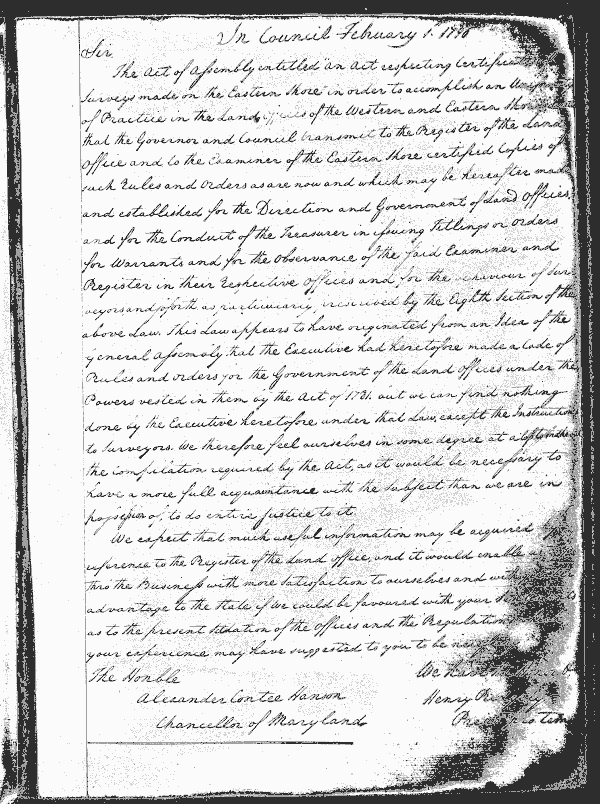 In Council February 1. 1796
Sir
The Act of Assembly entitled an Act respecting Certificates
Surveys made on the Eastern Shore in order to accomplish an
of Practice in the Land Offices of the Western and Eastern Shore
that the Governor and Council transmit to the Register of the Land
Office and to the Examiner of the Eastern Shore certified Copies of
such Rules and Orders as are now and which may be hereafter made
and established for the Direction and Government of Land Offices,
and for the Conduct of the Treasurer in issuing Titlings or Orders
for Warrants and for the Observance of the said Examiner and
Register in their respective Offices and for the behaviour of Sur
veyors and so forth as particularly prescribed by the Eighth Section of the
above Law. This Law appears to have originated from an Idea of the
general Assembly that the Executive had heretofore made a Code of
Rules and Orders for the Government of the Land Offices under the
Powers vested in them by the Act of 1781. but we can find nothing
done by the Executive heretofore under that Law, except the Instructions
to Surveyors. We therefore feel ourselves in some degree at a loss to make
the compilation required by the Act, as it would be necessary to
have a more full acquaintance with the subject than we are in
possession of, to do entire Justice to it.
We expect that much useful information may be acquired
reference to the Register of the Land Office, and it would enable
thro the Business with more satisfaction to ourselves and with
advantage to the State if we could be favoured with your
as to the present situation of the Offices and the Regulation
your experience may have suggested to you to be
The Honble We have
Alexander Contee Hanson Henry
Chancellor of Maryland